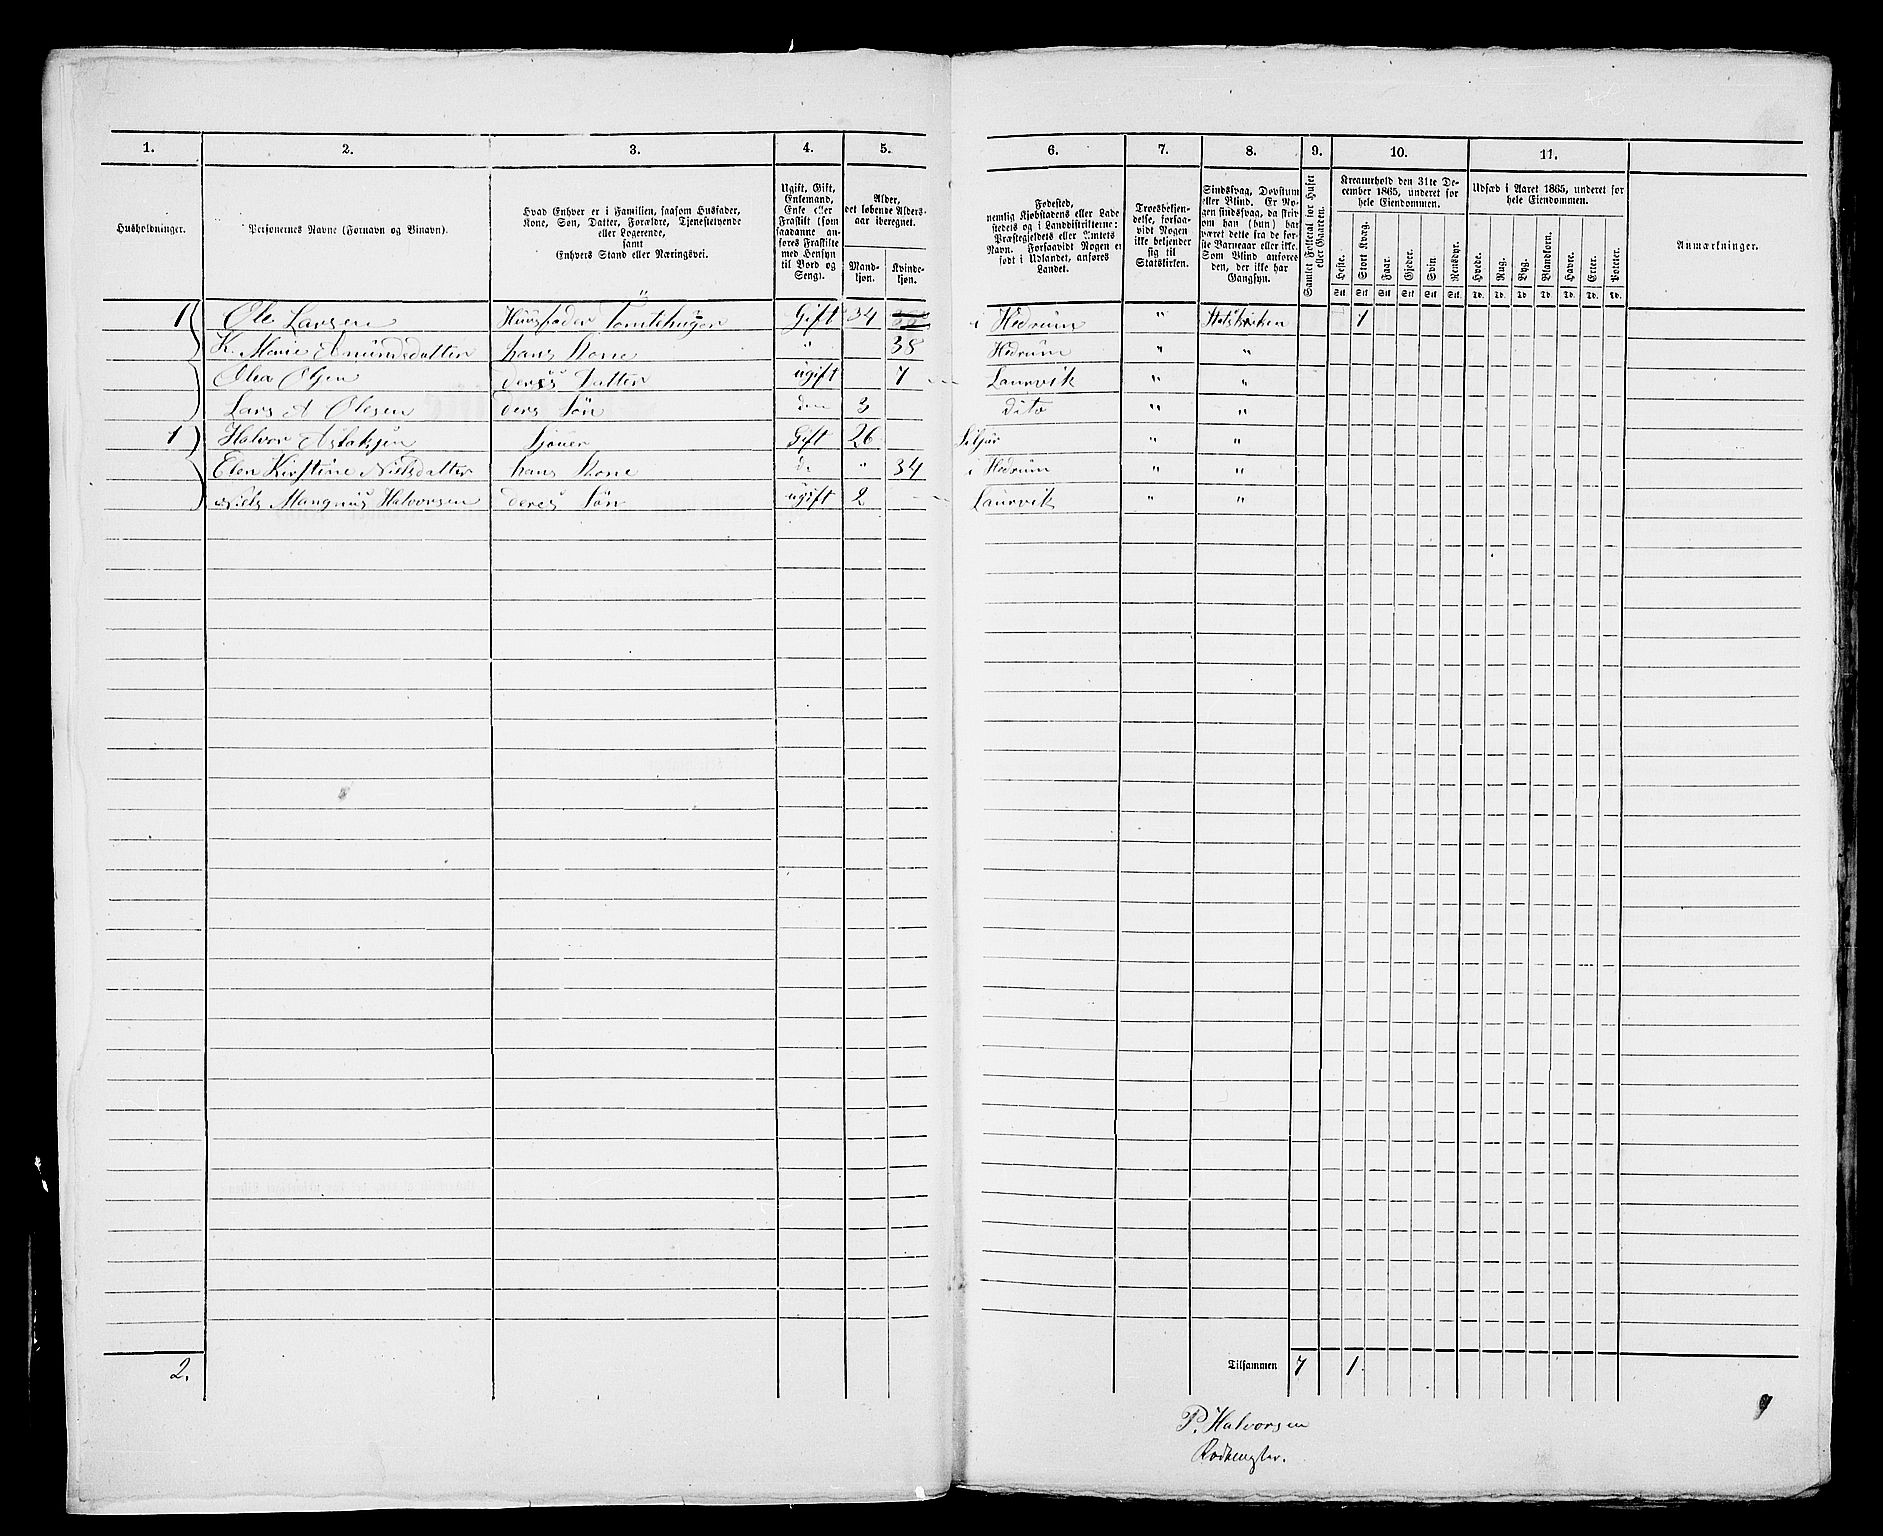 1. 2. 3. 4. 5. 6. 7. 8. 9. 10. 11.
Husholdninger.
Personernes Navne (Fornavn og Binavn).
Hvad Enhver er i Familien, saasom Husfader,
Kone, Søn, Datter, Forældre, Tjenestetyende
eller Logerende,
samt
Enhvers Stand eller Næringsvei.
Ugift, Gift,
Enkemand,
Enke eller
Fraskilt (som
saadanne an-
føres Fraskilte
med Hensyn
til Bord og
Seng).
Alder,
det løbende Alders-
aar iberegnet.
Mand-
kjøn.
Kvinde-
kjøn.
Fødested,
nemlig Kjøbstadens eller Lade-
stedets og i Landdistrikterne:
Præstegjeldets eller Amtets
Navn. Forsaavidt Nogen er
født i Udlandet, anføres
Landet.
Troesbekjen-
delse, forsaa-
vidt Nogen
ikke bekjender
sig til
Statskirken.
Sindssvag, Døvstum
eller Blind. Er No-
gen sindssvag, da skriv
om han (hun) har
været dette fra de før-
ste Barneaar eller ikke.
Som Blind anføres
den, der ikke har
Gangsyn.
Samlet Folketal for Huset
eller Gaarden.
Kreaturhold den 31te De-
cember 1865, underet for
hele Eiendommen.
Heste. Stort Kvæg. Faar. Gjeder. Svin. Rensdyr.
Stk. Stk. Stk. Stk. Stk. Stk.
Udsæd i Aaret 1865, underet for
hele Eiendommen.
Hvede. Rug. Byg. Blandkorn. Havre. Erter. Poteter.
Td. Td. Td. Td. Td. Td. Td.
Anmærkninger.
1 Ole Larsen Huusfader Tomtehuger Gift 34 i Hedrum " Statskirken 1
K. Marie Amundsdatter hans Kone " 38 Hedrum " "
Olea Olsen deres Datter ugift 7 Laurvik " "
Lars A Olesen ders Søn do 3 dito " "
1 Halvor Aslaksen Sjouer Gift 26 Siljar " "
Elen Kirstine Nielsdatter hans Kone do " 34 i Hedrum " "
Niels Mangnus Halvorsen deres Søn ugift 2 Laurvik " "
2. Tilsammen 7 1.
9
P. Halvorsen
Rodemester.